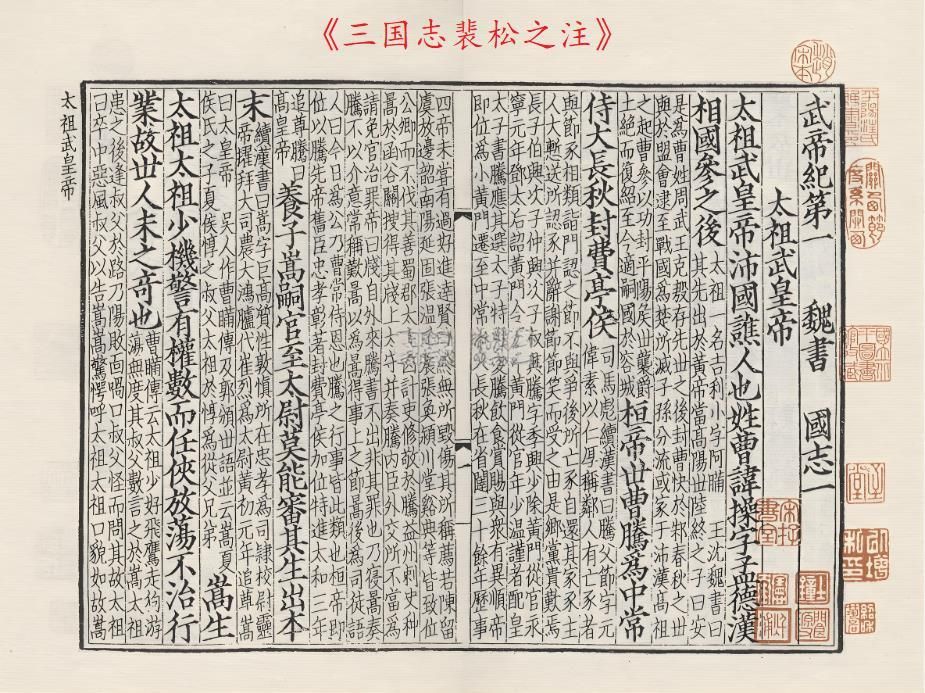 《三国志裴松之注》
武帝紀第一 魏書 國志一
太祖武皇帝
太祖武皇帝沛國譙人也姓曹諱操字孟德漢
相國參之後
太祖一名吉利小字阿瞞 王沈魏書曰
其先出於黃帝當高陽世陸終之子曰安
是爲曹姓周武王克殷存先世之後封曹俠於邾春秋之世
與於盟會逮至戰國爲楚所滅子孫分流或家于沛漢高祖
之起曹參以功封平陽侯世襲爵
土絕而復紹至今適嗣國於容城
桓帝世曹騰爲中常
侍大長秋封費亭侯
司馬彪續漢書曰騰父節字元
偉素以仁厚稱鄰人有亡豕者
與節豕相類詣門認之節不與爭後所亡豕自還其家豕主
人大慙送所認豕并辭謝節節笑而受之由是鄉黨貴歎焉
長子伯興次子仲興次子叔興騰字季興少除黃門從官永
寧元年鄧太后詔黃門令選中黃門從官年少溫謹者配皇
太子書騰應其選太子特親愛騰飲食賞賜與衆有異順帝
即位爲小黃門遷至中常侍大長秋在省闥三十餘年歷事
一
四帝未嘗有過好進達賢能終無所毀傷其所稱薦若陳留
虞放邊韶南陽延固張溫弘農張奐潁川堂谿典等皆致位
公卿而不伐其善蜀郡太守因計吏修敬於騰益州刺史种
暠於函谷關搜得其牋上太守并奏騰內臣外交所不當爲
請免官治罪帝曰牋自外來騰書不出非其罪也乃寢暠奏
騰不以介意常稱歎暠以爲暠得事上之節暠後爲司徒語
人曰今日爲公乃曹常侍恩也騰之行事皆此類也桓帝即
位以騰先帝舊臣忠孝彰著封費亭侯加位特進太和三年
追尊騰曰
高皇帝
養子嵩嗣官至太尉莫能審其生出本
末
續漢書曰嵩字巨高質性敦慎所在忠孝爲司隸校尉靈
帝擢拜大司農大鴻臚代崔烈爲太尉黃初元年追尊嵩
曰太皇帝 吳人作曹瞞傳及郭頒世語並云嵩夏
侯氏之子夏侯惇之叔父太祖於惇爲從父兄弟
嵩生
太祖太祖少機警有權數而任俠放蕩不治行
業故世人未之奇也
曹瞞傳云太祖少好飛鷹走狗游
蕩無度其叔父數言之於嵩太祖
患之後逢叔父於路乃陽敗面喎口叔父怪而問其故太祖
曰卒中惡風叔父以告嵩嵩驚愕呼太祖太祖口貌如故嵩
太祖武皇帝